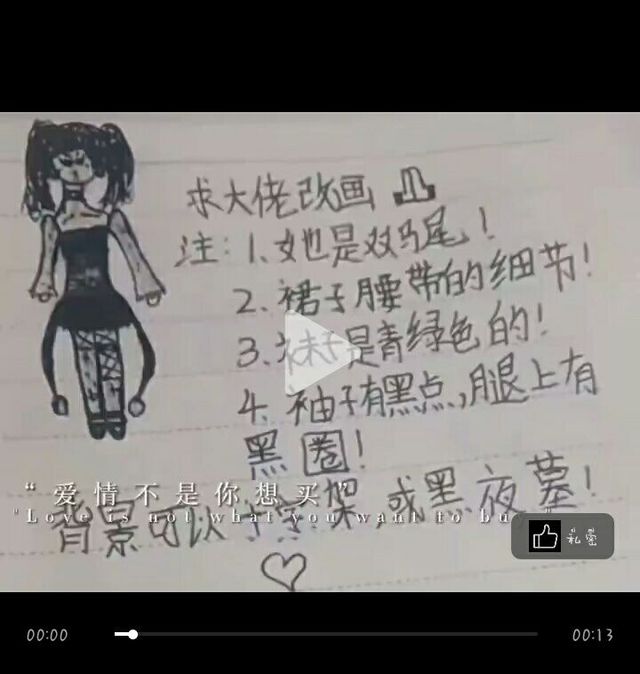 求大佬改画
注：1、她是双马尾！
2、裙子腰带的细节！
3、袜子是青绿色的！
4、袖子有黑点，腿上有
黑圈！
“爱情不是你想买”
"Love is not what you want to bu
背景可以 架，或黑夜墓！
私密
00:00
00:13